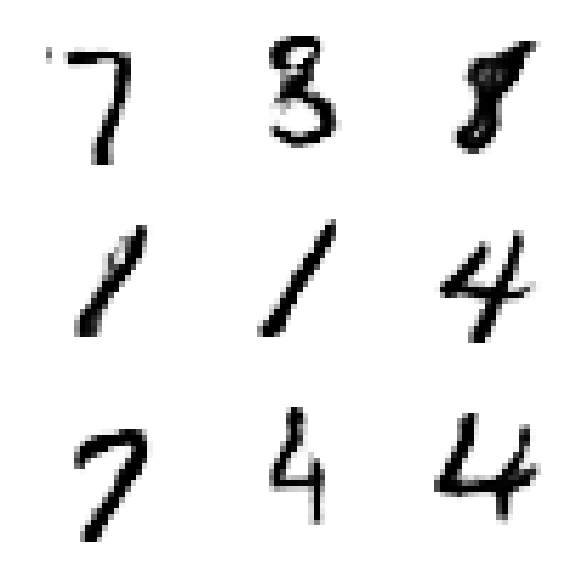 7 3 8
1 1 4
7 4 4